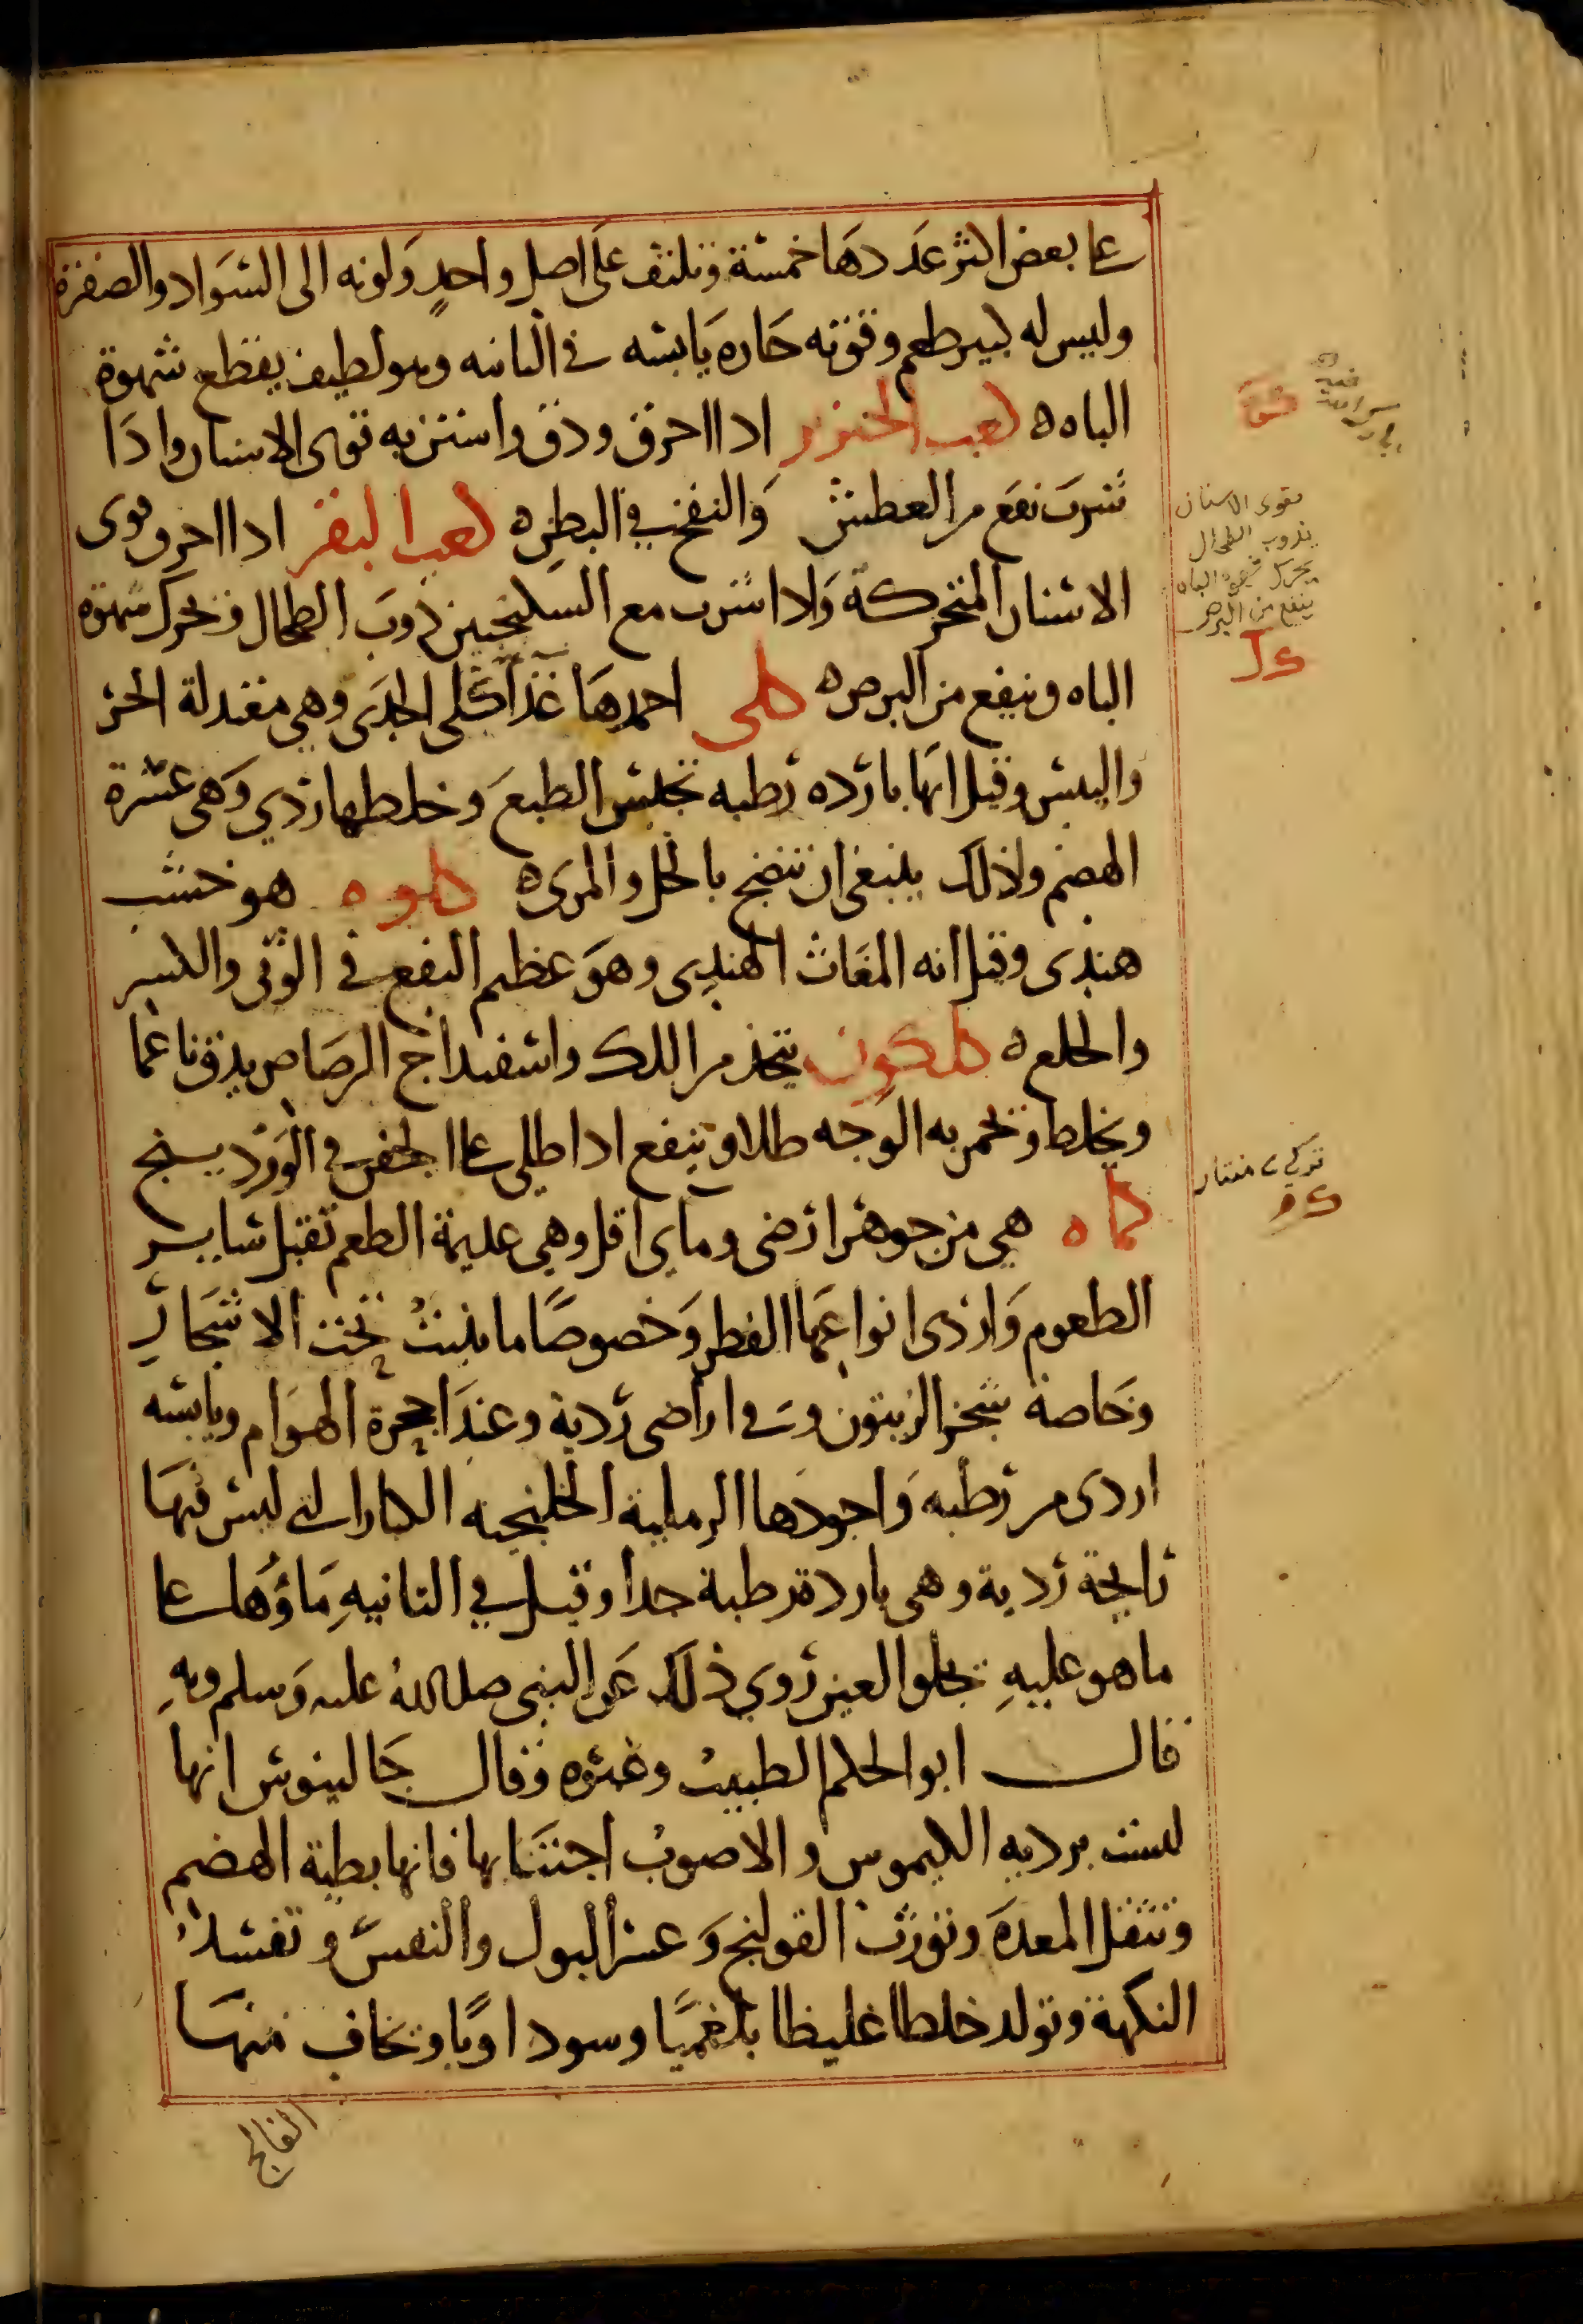 على بعض اكثر عددها خمسة وتلتف على اصل واحد ولونه الى السواد والصفرة
وليس له كبير طعم وقوته حاره يابسه في الثانيه وهو لطيف يقطع شهوة
الباه ه كعب الخنزير اذا احرق ودق واستن به قوى الاسنان واذا
شرب نفع من العطش والنفخ في البطن ه كعب البقر اذا احرق قوى
الاسنان المتحركة واذا شرب مع السكنجبين ذوب الطحال وحرك شهوة
الباه وينفع من البرص ه كلى احمدها غذا كلى الجدى وهي معتدلة الحر
واليبس وقيل انها بارده رطبه تحبس الطبع وخلطها ردي وهى عسرة
الهضم ولذلك ينبغى ان تنضج بالخل والمرى ه كلوه هو خشب
هندى وقيل انه المغاث الهندى وهو عظيم النفع في الوثى والكسر
والخلع ه كلكون يتخذ من اللك واسفيداج الرصاص يدق ناعما
ويخلط ويحمر به الوجه طلا وينفع اذا طلى على الجفن في الوردينج
كماه هي من جوهر ارضى وماى اقل وهي عديمة الطعم تقبل ساير
الطعوم واردى انواعها الفطر وخصوصا ما ينبت تحت الاشجار
وخاصة شجر الزيتون وفي اراضى ردية وعند اجحرة الهوام ويابسه
اردى من رطبه واجودها الرملية الخلنجيه الكبار التى ليس فيها
رايحة ردية وهى باردة رطبة جدا وقيل في الثانيه ماؤها على
ما هو عليه يجلو العين روي ذلك عن النبى صلى الله عليه وسلم وبه
قال ابو الحكم الطبيب وغيره وقال جالينوس انها
ليست برديه الكيموس والاصوب اجتنابها فانها بطية الهضم
وتثقل المعدة وتورث القولنج وعسر البول والنفس وتفسد
النكهة وتولد خلطا غليظا بلغميا وسوداويا ويخاف منها
الفالج
مقوى الاسنان
يذوب الطحال
يحرك شهوة الباه
ينفع من البرص
كل
كم